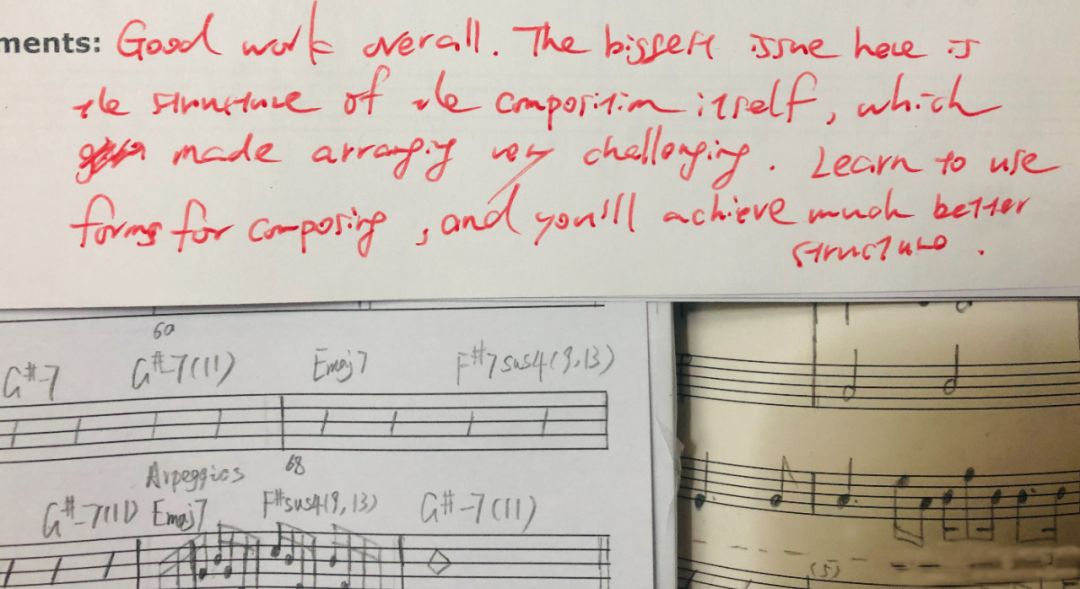 ments: Good work overall. The biggest issue here is
the structure of the composition itself, which
made arranging very challenging. Learn to use
forms for composing, and you'll achieve much better
structure.
60
G#-7 G#-7(11) Emaj7 F#7sus4(9,13)
Arpeggios 68
G#-7(11) Emaj7 F#sus4(9,13) G#-7(11)
(5)